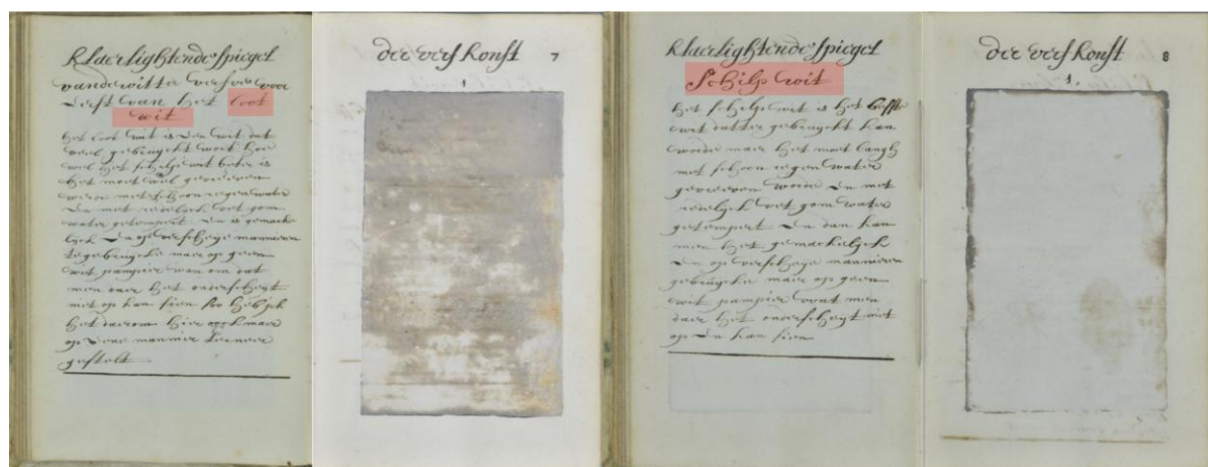 klaerlightende spiegel
vande witte verfve voor
Eerst van het loot
wit
het loot wit is een wit dat
veel gebruyckt wort hoe
wel het schilp wit beter is
het moet wel gevreven
met schoon regen water
en met redelyck vet gom
water getempert en is gemacke
lyck en op verscheye mannieren
te gebruycke maer op geen
wit pampier want om dat
men daer het onderscheyt
niet op kan sien soo heb ick
het daerom hier ock maer
op eene mannier
gestelt
der verf konst 7
1
klaerlightende spiegel
schilp wit
het schilp wit is het beste
wit datter gebruyckt kan
worde maer het moet langh
met schoon regen water
gevreven worde en met
redelyck vet gom water
getempert en dan kan
men het gemackelyck
en op verscheye mannieren
gebruycke maer op geen
wit pampier want men
daer het onderscheyt niet
op en kan sien
der verf konst 8
1.